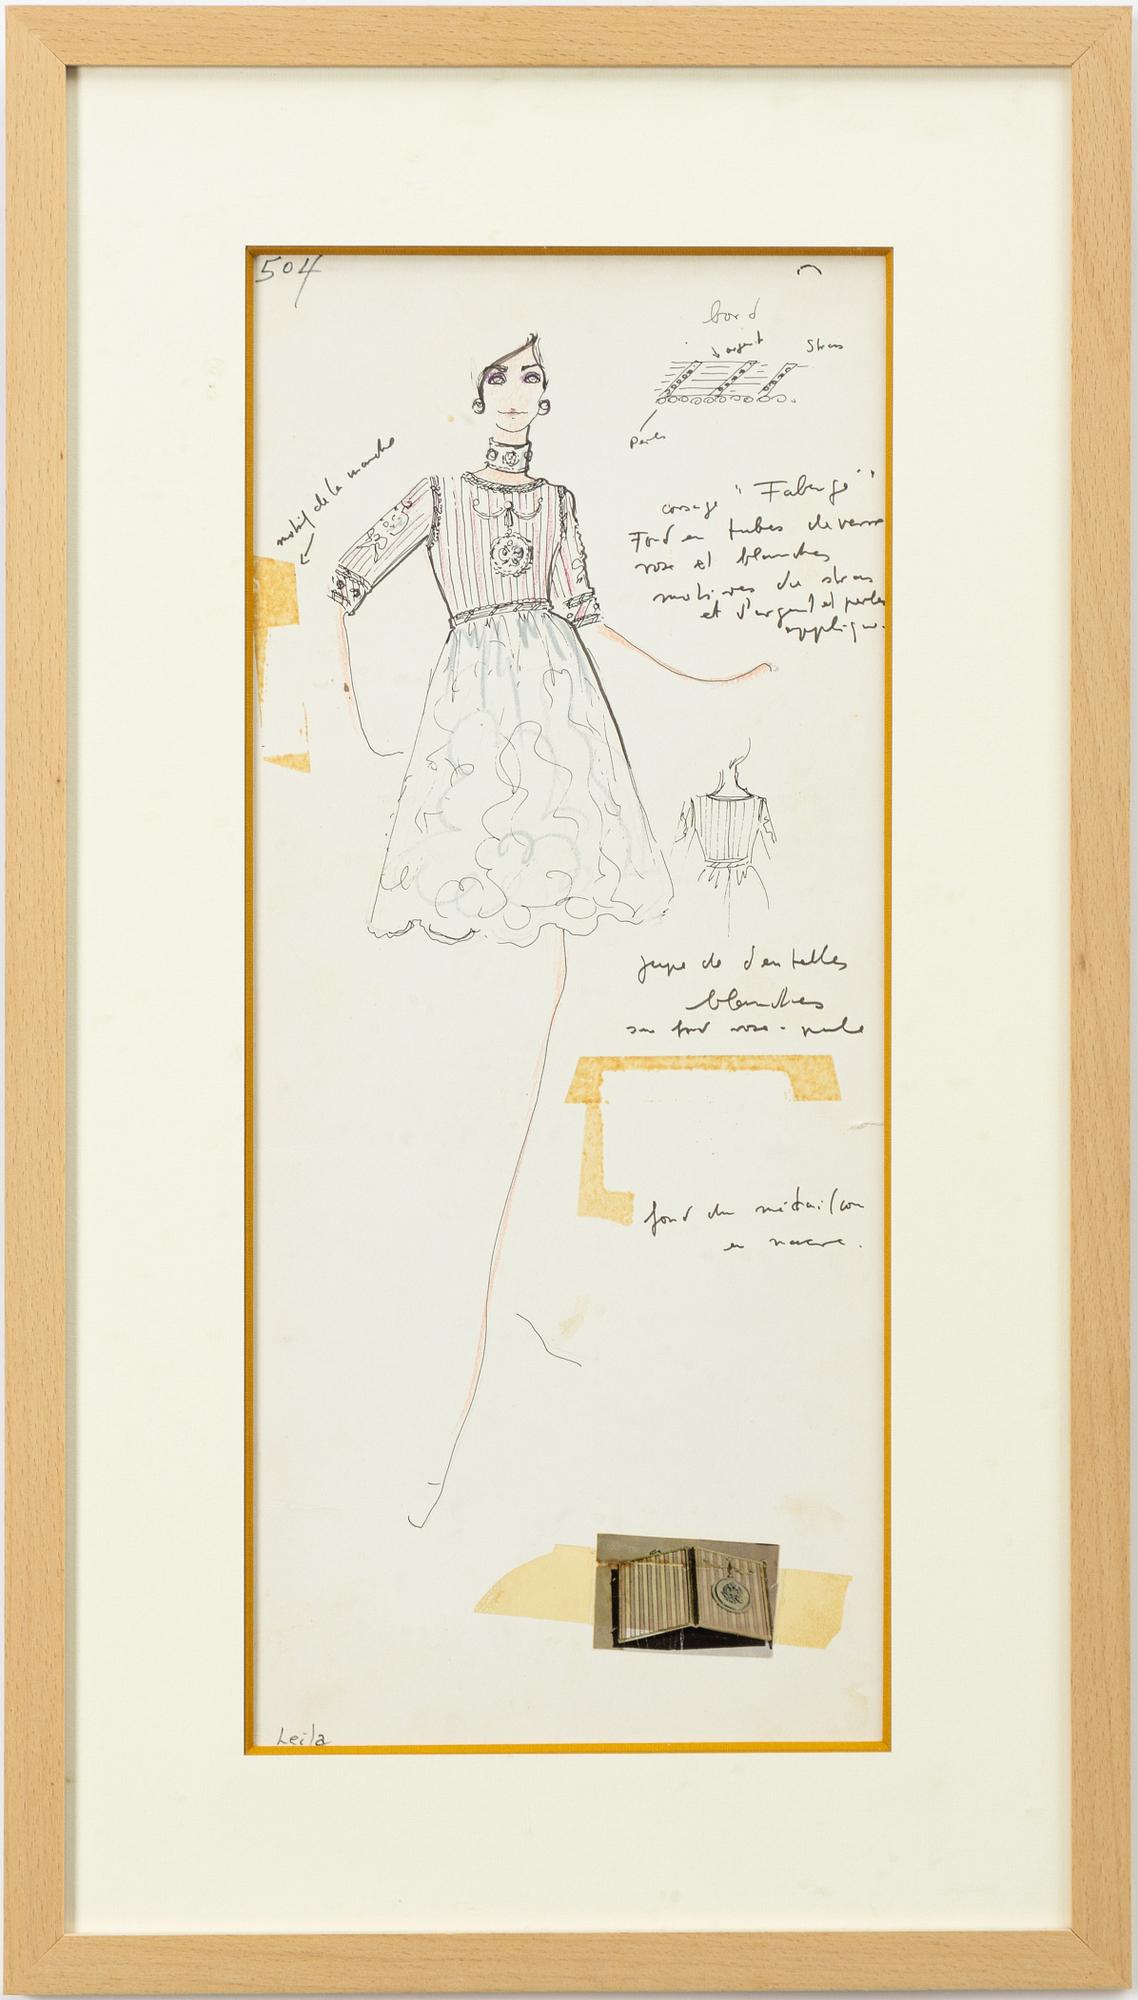 504
bord
argent
Strass
perles
motif de la manche
corsage "Fabergé"
Fond en tubes de verre
rose et blanches
motives du strass
et d'argent et perles
appliqu.
jupe de dentelles
blanches
sur fond rose-pale
fond du médaillon
en nacre.
Leila